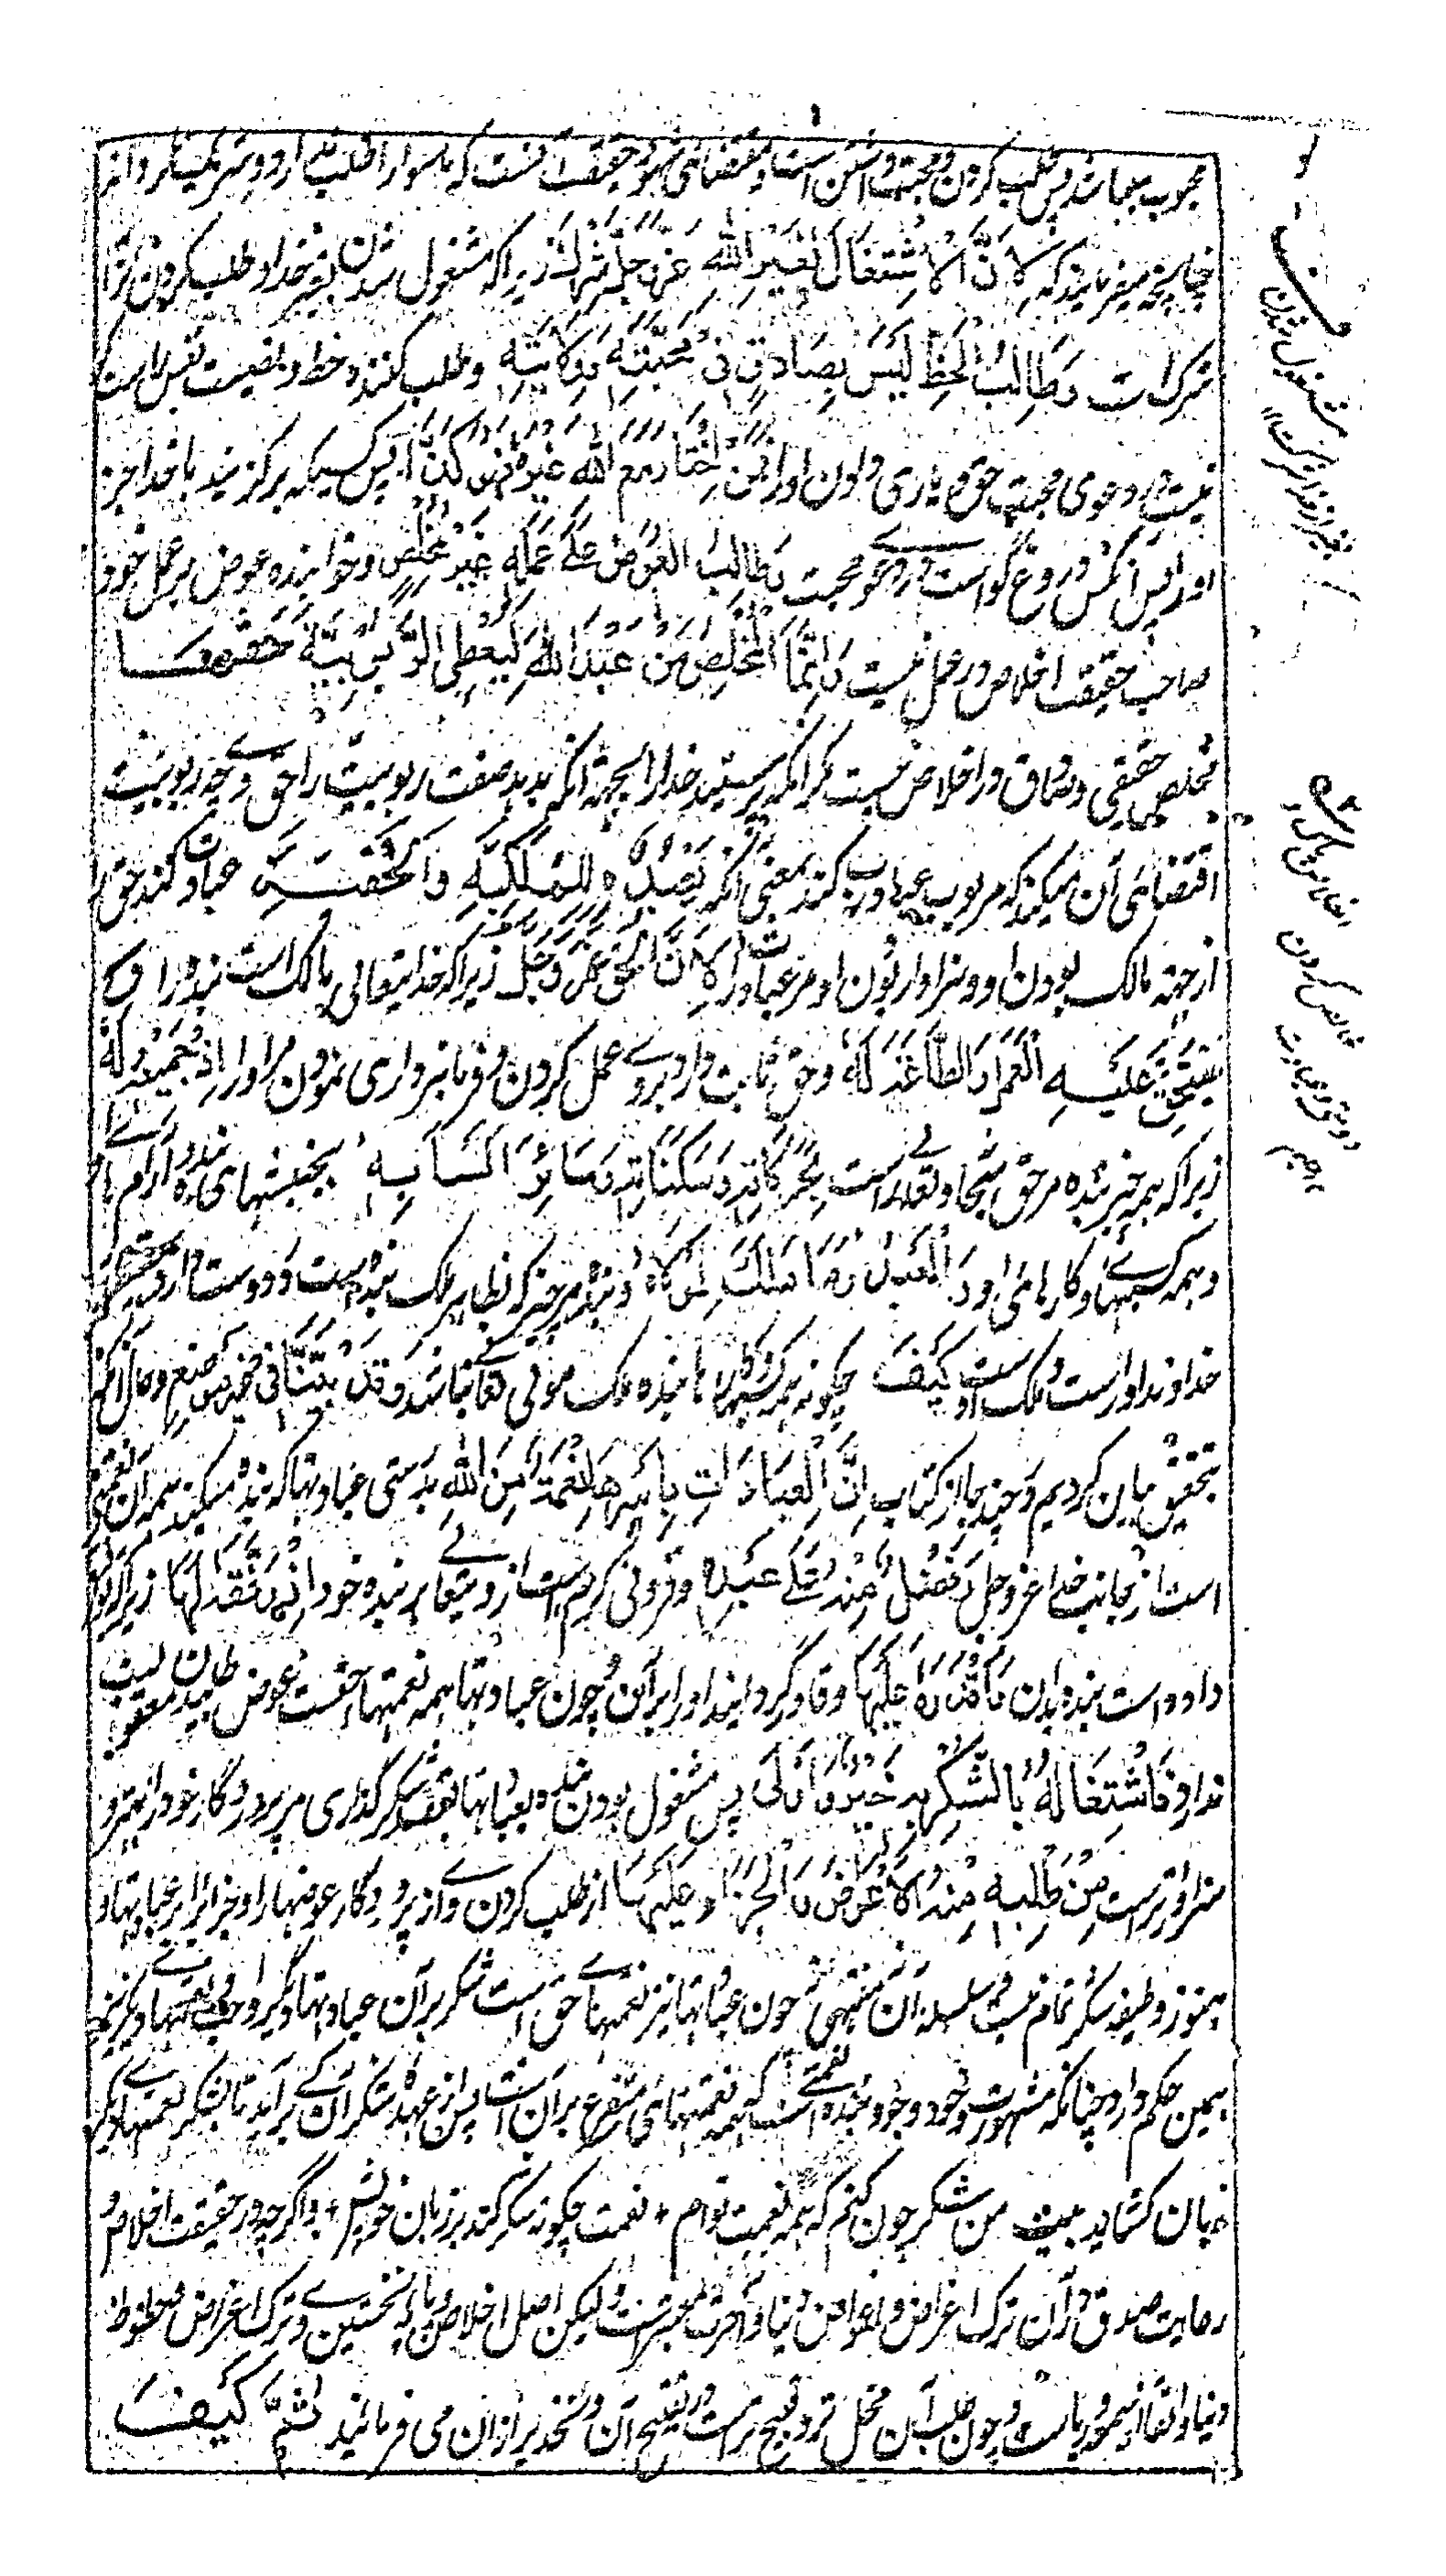 محبوب بیما شد پس طلب کردن و محبت داشتن است و مقتضای شهود حقیقت آنست که ماسوا را طلب ندارد و شریک نگرداند
چنانچه میفرمایند که لِاَنَّ الْاِشْتِغَالَ بِغَیْرِ اللهِ عَزَّ وَجَلَّ شِرْكٌ زیرا که مشغول شدن بغیر خدا و طلب کردن آنرا
شرک است وَطَالِبُ الْحَظِّ لَیْسَ بِصَادِقٍ فِیْ مَحَبَّتِهٖ وَوِلَایَتِهٖ و طلب کننده حظ و نصیب نفس راست
نیست در دعوی محبت حق و یاری دادن او را فَمَنِ اخْتَارَ مَعَ اللهِ غَیْرَهٗ فَهُوَ كَذَّابٌ پس کسیکه برگزیند با خدا جز
او را پس آنکس دروغ گو است در دعوی محبت وَطَالِبُ الْعِوَضِ عَلٰے عَمَلِهٖ غَیْرُ مُخْلِصٍ و خواهنده عوض بر عمل خود
صاحب حقیقت اخلاص در عمل نیست وَاِنَّمَا الْمُخْلِصُ مَنْ عَبَدَ اللهَ لِیُعْطِیَ الرُّبُوْبِیَّةَ حَقَّهَا
مخلص حقیقی و صادق در اخلاص نیست مگر آنکه پرستید خدا را بجهة آنکه بدهد صفت ربوبیت را حق وے چه ربوبیت
اقتضای آن میکند که مربوب عبادت کند بمعنی آنکه یَعْبُدُهٗ لِلْمِلْكِیَّةِ وَالْحَقِّیَّةِ عبادت کند حق را
از جهته مالک بودن او و سزاوار بودن او مر عبادت را لِاَنَّ الْحَقَّ عَزَّ وَجَلَّ زیرا که خدایتعالی مالک است بنده را
یَسْتَحِقُّ عَلَیْهِ الْعَمَلَ وَالطَّاعَةَ لَهٗ و حق ثابت دارد بروے عمل کردن و فرمانبرداری نمودن مر او را اِذْ جَمِیْعُهٗ لَهٗ
زیرا که همه چیز بنده مر حق سبحانه و تعالے راست بِحَرَكَاتِهٖ وَسَكَنَاتِهٖ وَسَائِرِ اَكْسَابِهٖ بجنبشهای بنده و آرامها
و همه کسبها و کارهای او وَالْعَبْدُ وَمَا مَلَكَ لِمَوْلَاهُ و بنده و هر چیز که بظاهر ملک بنده است و در دست دارد
خداوند او راست و ملک اوست كَیْفَ چگونه بنده ملک مولی تعالے نباشد وَقَدْ بَیَّنَّا فِی غَیْرِ مَوْضِعٍ و حال آنکه
بتحقیق بیان کردیم در چند جا از کتاب اِنَّ الْعِبَادَاتِ بِاَسْرِهَا نِعْمَةٌ مِنَ اللهِ بدرستی عبادتها که بنده میکند همه آن نعمتی
است از جانب خدا عز و جل وَفَضْلٌ مِنْهُ عَلٰے عَبْدِهٖ و فزونی کرم است از وتعالے بر بنده خود اِذْ وَفَّقَهٗ لَهَا زیرا که توفیق
داده است بنده را بدان وَاَقْدَرَهٗ عَلَیْهَا و قادر گردانید او را بر آن و چون عبادتها همه نعمتهاے حق است عوض طلبیدن معقولیت
ندارد فَاشْتِغَالُهٗ بِالشُّكْرِ لِرَبِّهٖ خَیْرٌ وَاَوْلٰی پس مشغول بودن بنده بعبادتها بقصد شکر گذاری مر پروردگار خود را بهتر و
سزاوارتر است مِنْ طَلَبِهٖ مِنْهُ الْاَعْوَاضَ وَالْجَزَاءَ عَلَیْهَا از طلب کردن وے از پروردگار عوضها را و جزا را بر عبادتها و
هنوز وظیفه شکر تمام نیست و سلسله آن منتهی نه چون عبادتها نیز نعمتهاے حق است شکر بر آن عبادتها دیگر واجب و نعمتهاے دیگر نیز
همین حکم دارد چنانکه مشهور است و خود وجود بنده نعمتے است که همه نعمتهای متفرع بر آنست پس از عهده شکر آن کے برآید تا بشکر نعمتهاے دیگر
زبان کشاید بیت من شکر چون کنم که همه نعمت توام + نعمت چگونه شکر کند بر زبان خویش + و اگر چه در حقیقت اخلاص و
رعایت صدق در آن ترک اغراض و اعواض دنیا و آخرت معتبر است و لیکن اصل اخلاص و پایه نخستین وے ترک اغراض و حظوظ
دنیا و اتقا از سمعه و ریا است و چون طلب آن مخل تر و قبیح تر است در تقبیح آن و تحذیر از آن می فرمایند ثُمَّ كَیْفَ
ف
مشغول شدن
بغیر از خدا شرک است ۱۲